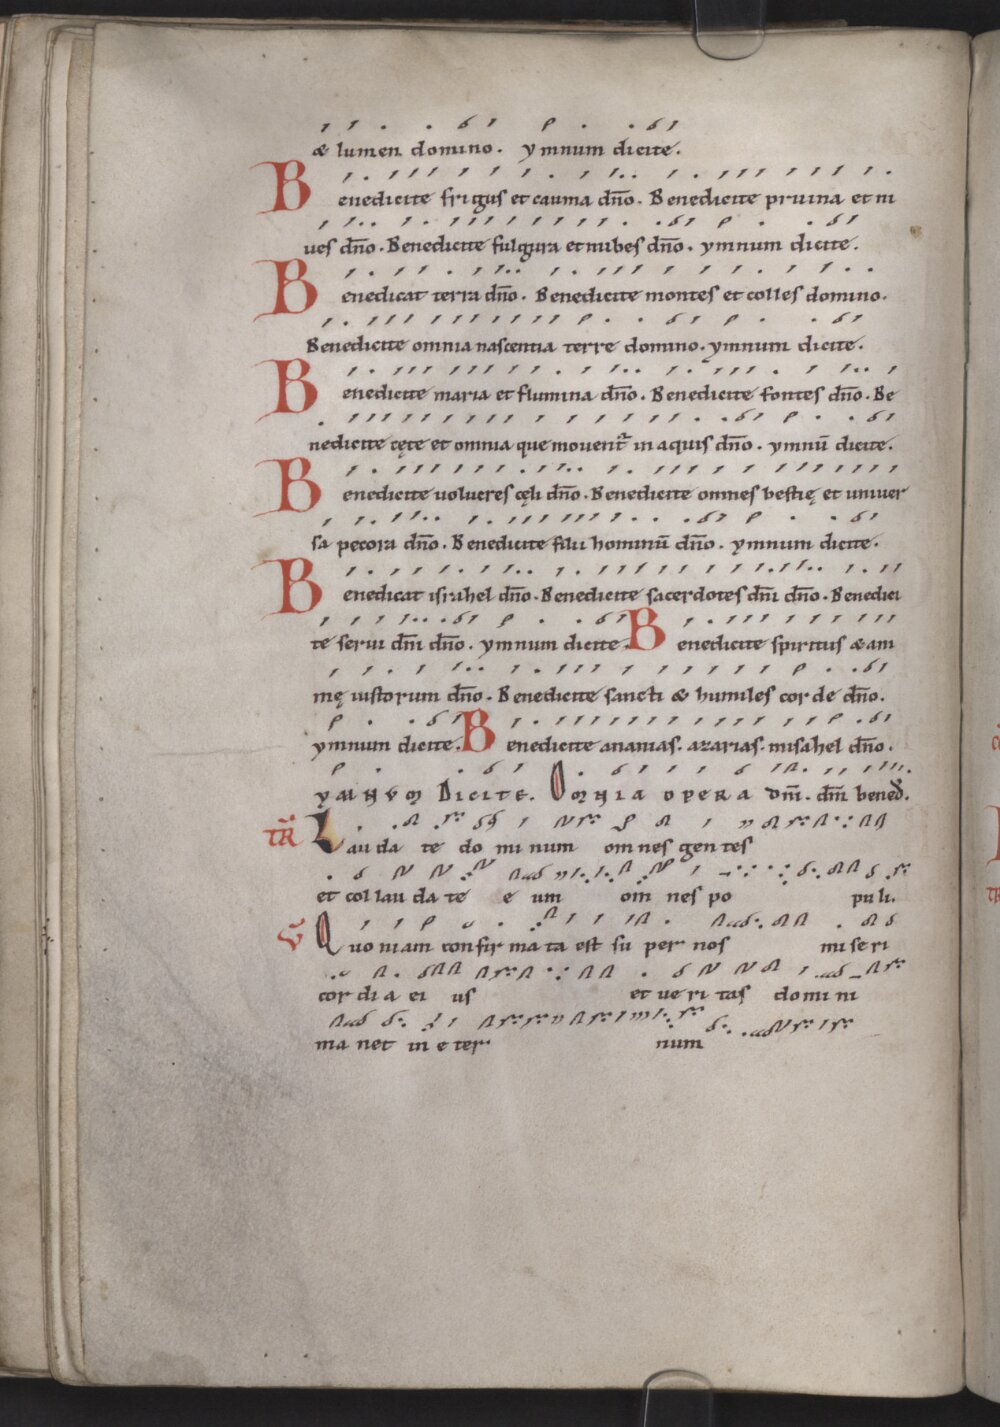 & lumen domino. ymnum dicite.
Benedicite frigus et cauma dño. Benedicite pruina et ni
ues dño. Benedicite fulgura et nubes dño. ymnum dicite.
Benedicat terra dño. Benedicite montes et colles domino.
Benedicite omnia nascentia terre domino. ymnum dicite.
Benedicite maria et flumina dño. Benedicite fontes dño. Be
nedicite cęte et omnia que mouent᷑ in aquis dño. ymnū dicite.
Benedicite uolucres cęli dño. Benedicite omnes bestię et uniuer
sa pecora dño. Benedicite filii hominū dño. ymnum dicite.
Benedicat israhel dño. Benedicite sacerdotes dñi dño. Benedici
te serui dñi dño. ymnum dicite. Benedicite spiritus & ani
mę iustorum dño. Benedicite sancti & humiles corde dño.
ymnum dicite. Benedicite ananias. azarias. misahel dño.
YMNUM DICITE. OMNIA OPERA Dñi. dñi bened̄.
TR̄ Lau da te do mi num om nes gen tes
et col lau da te e um om nes po pu li.
V Quo niam con fir ma ta est su per nos mi se ri
cor di a ei us et ue ri tas domi ni
ma net in e ter num